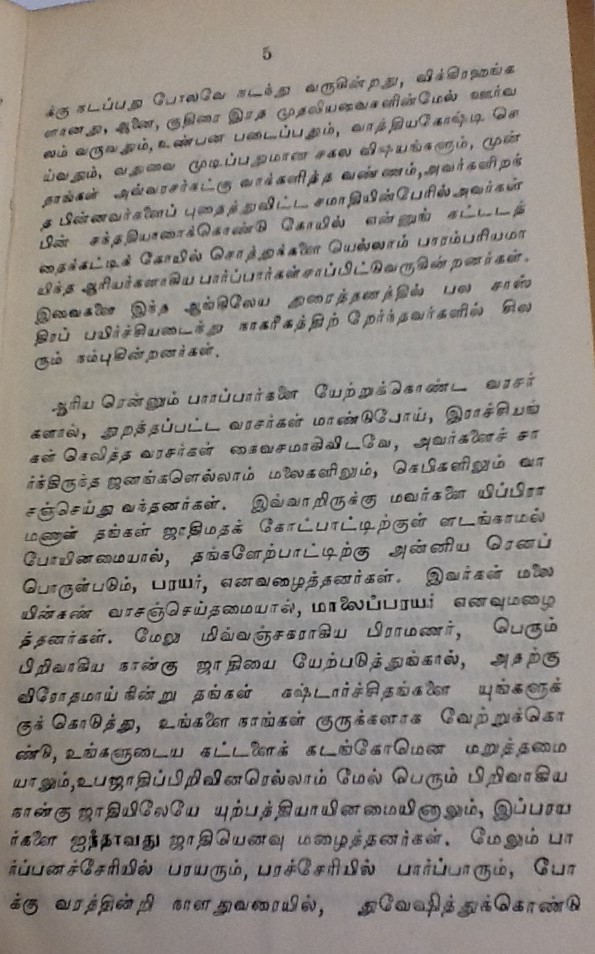 5
க்கு நடப்பது போலவே நடந்து வருகின்றது, விக்கிரஹங்க
ளானது, ஆனை, குதிரை இரத முதலியவைகளின்மேல் ஊர்வ
லம் வருவதும், உண்பன படைப்பதும், வாத்தியகோஷ்டி செ
ய்வதும், வதுவை முடிப்பதுமான சகல விஷயங்களும், முன்
தாங்கள் அவ்வரசர்கட்கு வாக்களித்த வண்ணம், அவர்களிறந்
த பின்னவர்களைப் புதைத்துவிட்ட சமாதியின்பேரில் அவர்கள்
பின் சந்ததியாரைக்கொண்டு கோயில் என்னுங் கட்டடத்
தைக்கட்டிக் கோயில் சொத்துக்களை யெல்லாம் பாரம்பரியமா
யிந்த ஆரியர்களாகிய பார்ப்பார்கள் சாப்பிட்டுவருகின்றனர்கள்.
இவைகளை இந்த ஆங்கிலேய துரைத்தனத்தில் பல சாஸ்
திரப் பயிர்ச்சியடைந்து நாகரீகத்திற் றேர்ந்தவர்களில் சில
ரும் நம்புகின்றனர்கள்.
ஆரிய ரென்னும் பாரப்பார்களை யேற்றுக்கொண்ட வரசர்
களால், துறத்தப்பட்ட வரசர்கள் மாண்டுபோய், இராச்சியங்
கள் செலித்த வரசர்கள் கைவசமாகிவிடவே, அவர்களைச் சா
ர்ந்திருந்த ஜனங்களெல்லாம் மலைகளிலும், கெபிகளிலும் வா
சஞ்செய்து வந்தனர்கள். இவ்வாறிருக்கு மவர்களை யிப்பிரா
மணாள் தங்கள் ஜாதிமதக் கோட்பாட்டிற்குள் ளடங்காமல்
போயினமையால், தங்களேற்பாட்டிற்கு அன்னிய ரெனப்
பொருள்படும், பரயர், எனவழைத்தனர்கள். இவர்கள் மலை
யின்கண் வாசஞ்செய்தமையால், மாலைப்பரயர் எனவுமழை
த்தனர்கள். மேலு மிவ்வஞ்சகராகிய பிராமணர், பெரும்
பிறிவாகிய நான்கு ஜாதியை யேற்படுத்துங்கால், அதற்கு
விரோதமாய் நின்று தங்கள் கஷ்டார்ச்சிதங்களை யுங்களுக்
குக் கொடுத்து, உங்களை நாங்கள் குருக்களாக வேற்றுக்கொ
ண்டு, உங்களுடைய கட்டளைக் கடங்கோமென மறுத்தமை
யாலும், உபஜாதிப்பிறிவினரெல்லாம் மேல் பெரும் பிறிவாகிய
நான்கு ஜாதியிலேயே யுற்பத்தியாயினமையினாலும், இப்பரய
ர்களை ஐந்தாவது ஜாதியெனவு மழைத்தனர்கள். மேலும் பா
ர்ப்பனச்சேரியில் பரயரும், பரச்சேரியில் பார்ப்பாரும், போ
க்கு வரத்தின்றி நாளதுவரையில், துவேஷித்துக்கொண்டு